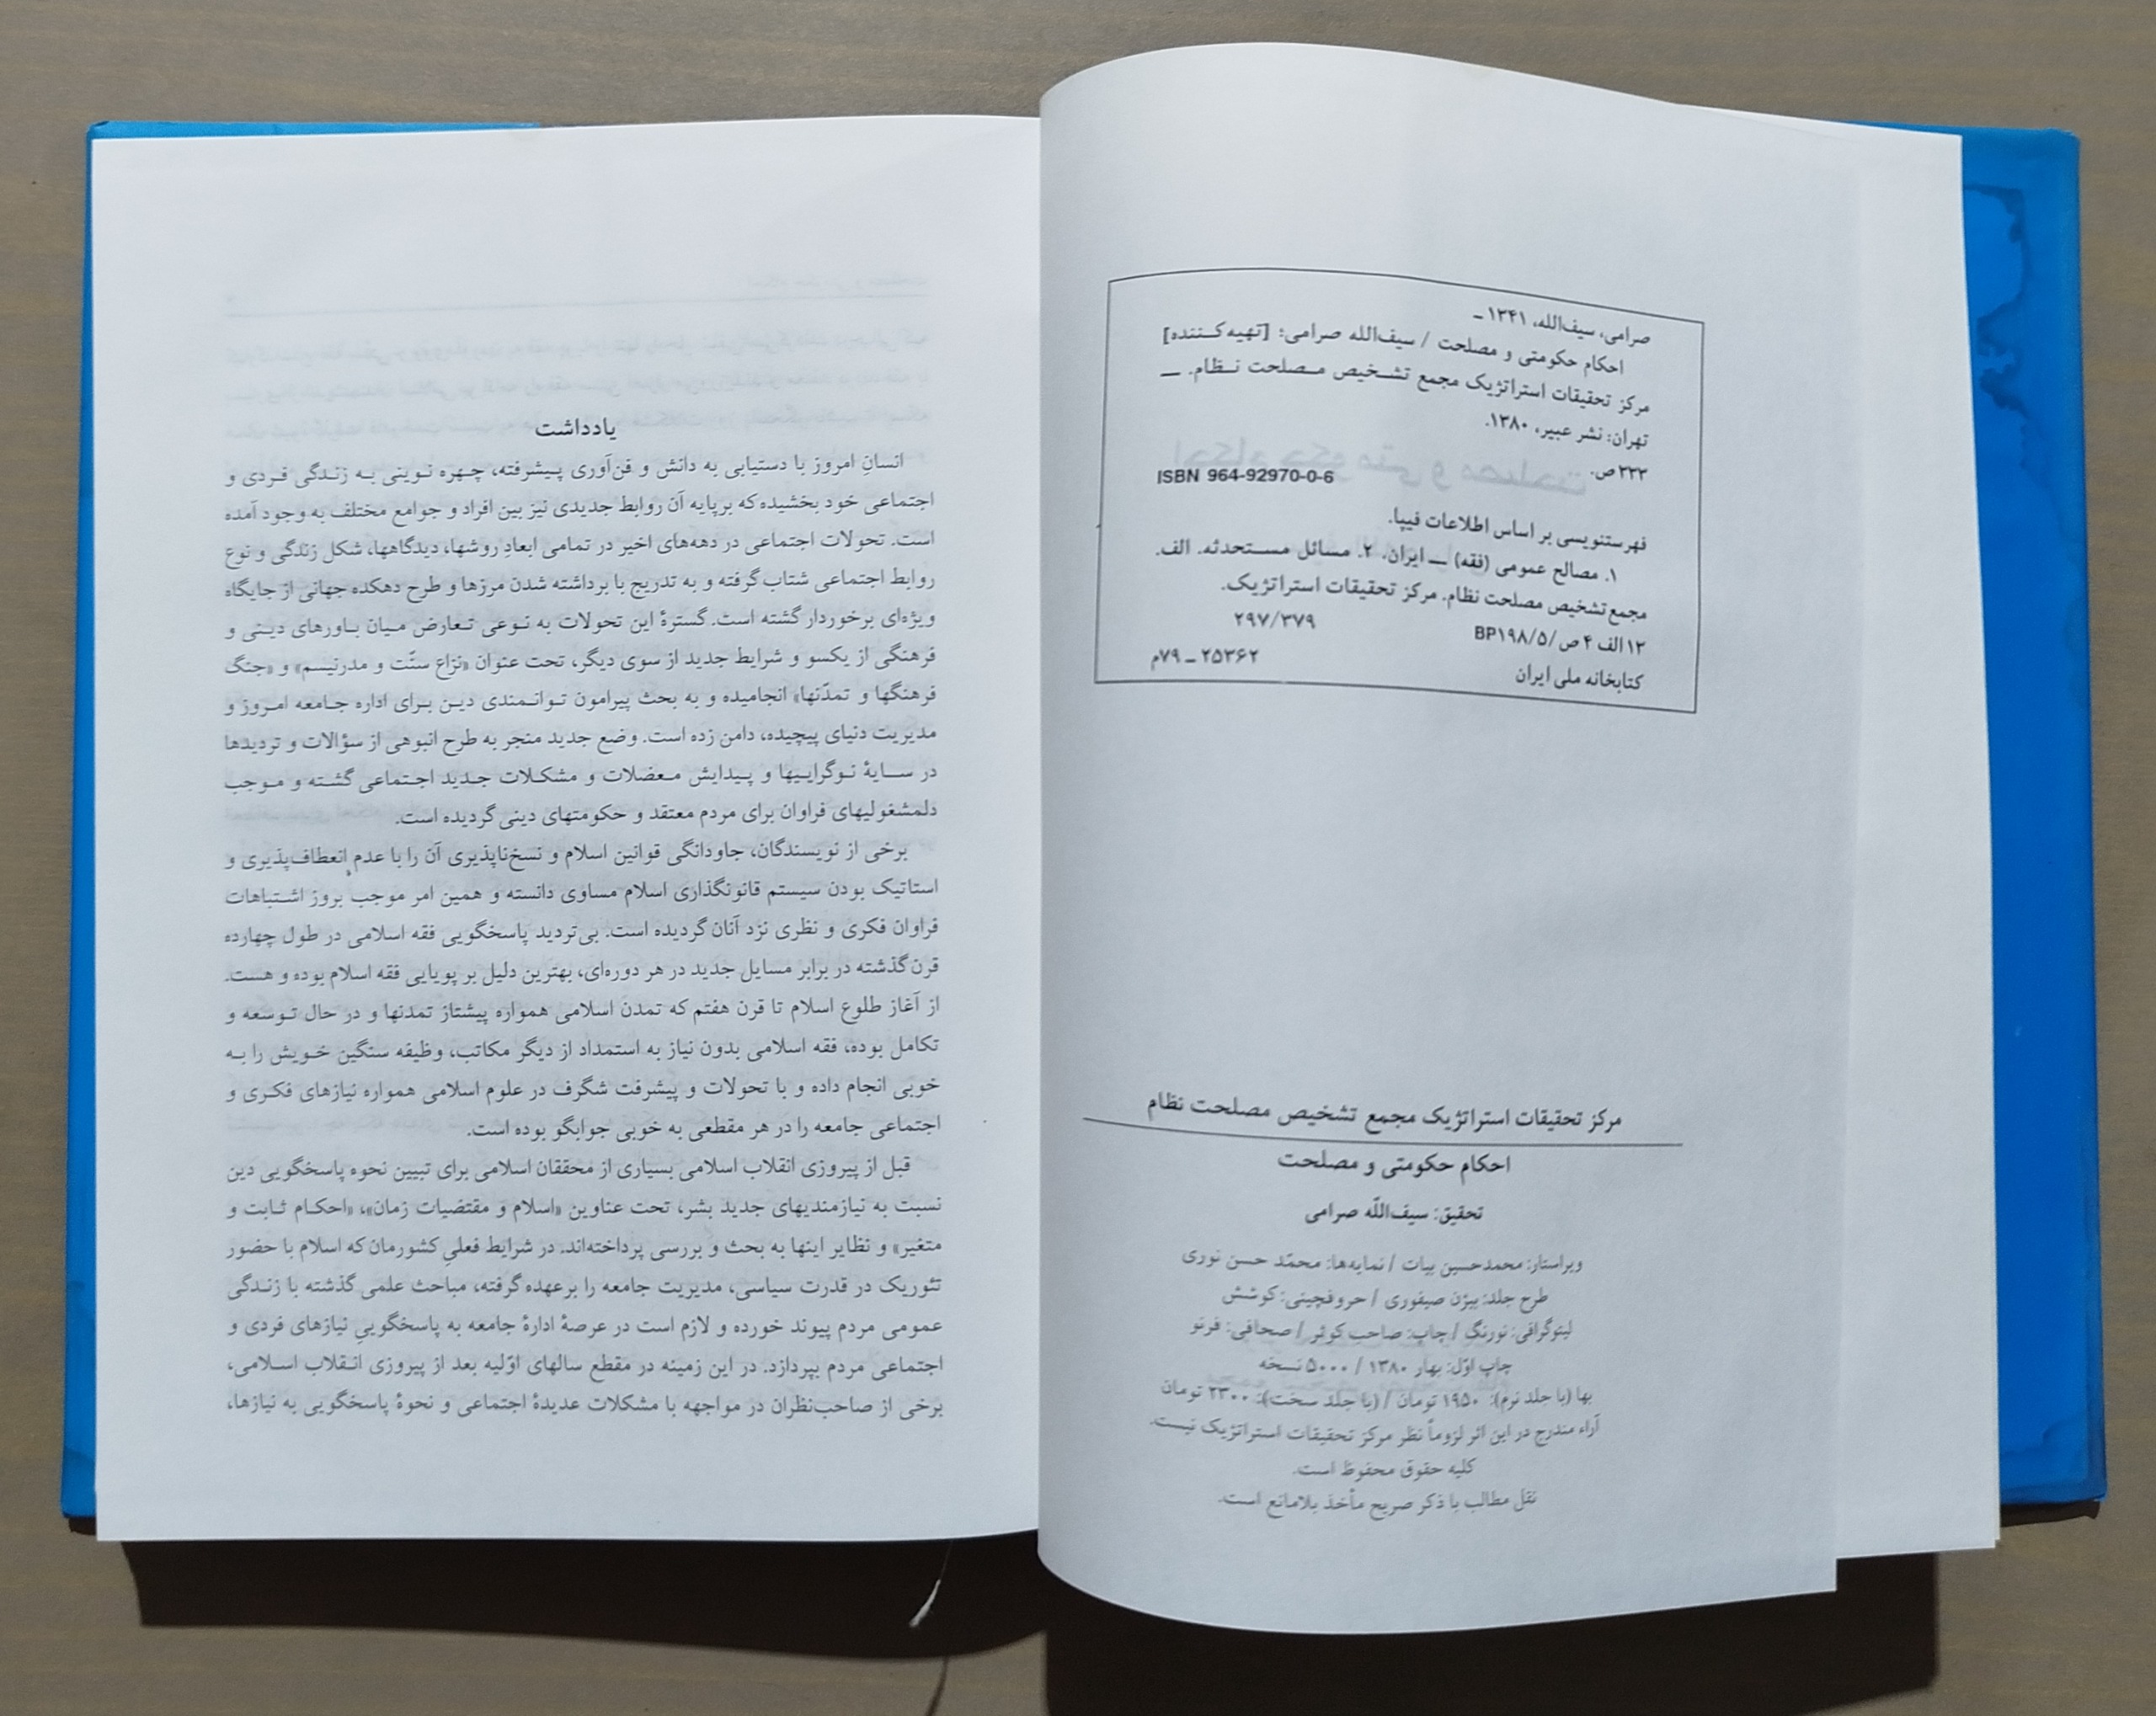 صرامی، سیف‌الله، ۱۳۴۱ ـ
احکام حکومتی و مصلحت / سیف‌الله صرامی؛ [تهیه‌کننده]
مرکز تحقیقات استراتژیک مجمع تشخیص مصلحت نظام. ـــ
تهران: نشر عبیر، ۱۳۸۰.
۳۳۳ ص.
ISBN 964-92970-0-6
فهرستنویسی بر اساس اطلاعات فیپا.
۱. مصالح عمومی (فقه) ـــ ایران. ۲. مسائل مستحدثه. الف.
مجمع تشخیص مصلحت نظام. مرکز تحقیقات استراتژیک.
۱۳ الف ۴ ص / BP۱۹۸/۵ ۲۹۷/۳۷۹
کتابخانه ملی ایران ۲۵۳۶۲ ـ ۷۹م
مرکز تحقیقات استراتژیک مجمع تشخیص مصلحت نظام
احکام حکومتی و مصلحت
تحقیق: سیف‌اللّه صرامی
ویراستار: محمدحسین بیات / نمایه‌ها: محمّد حسن نوری
طرح جلد: بیژن صیفوری / حروفچینی: کوشش
لیتوگرافی: نورنگ / چاپ: صاحب کوثر / صحافی: فرنو
چاپ اوّل: بهار ۱۳۸۰ / ۵۰۰۰ نسخه
بها (با جلد نرم): ۱۹۵۰ تومان / (با جلد سخت): ۲۳۰۰ تومان
آراء مندرج در این اثر لزوماً نظر مرکز تحقیقات استراتژیک نیست.
کلیه حقوق محفوظ است.
نقل مطالب با ذکر صریح مأخذ بلامانع است.
یادداشت
انسانِ امروز با دستیابی به دانش و فن‌آوری پیشرفته، چهره نوینی به زندگی فردی و
اجتماعی خود بخشیده که برپایه آن روابط جدیدی نیز بین افراد و جوامع مختلف به وجود آمده
است. تحولات اجتماعی در دهه‌های اخیر در تمامی ابعادِ روشها، دیدگاهها، شکل زندگی و نوع
روابط اجتماعی شتاب گرفته و به تدریج با برداشته شدن مرزها و طرح دهکده جهانی از جایگاه
ویژه‌ای برخوردار گشته است. گسترۀ این تحولات به نوعی تعارض میان باورهای دینی و
فرهنگی از یکسو و شرایط جدید از سوی دیگر، تحت عنوان «نزاع سنّت و مدرنیسم» و «جنگ
فرهنگها و تمدّنها» انجامیده و به بحث پیرامون توانمندی دین برای اداره جامعه امروز و
مدیریت دنیای پیچیده، دامن زده است. وضع جدید منجر به طرح انبوهی از سؤالات و تردیدها
در سایۀ نوگراییها و پیدایش معضلات و مشکلات جدید اجتماعی گشته و موجب
دلمشغولیهای فراوان برای مردم معتقد و حکومتهای دینی گردیده است.
برخی از نویسندگان، جاودانگی قوانین اسلام و نسخ‌ناپذیری آن را با عدم انعطاف‌پذیری و
استاتیک بودن سیستم قانونگذاری اسلام مساوی دانسته و همین امر موجب بروز اشتباهات
فراوان فکری و نظری نزد آنان گردیده است. بی‌تردید پاسخگویی فقه اسلامی در طول چهارده
قرن گذشته در برابر مسایل جدید در هر دوره‌ای، بهترین دلیل بر پویایی فقه اسلام بوده و هست.
از آغاز طلوع اسلام تا قرن هفتم که تمدن اسلامی همواره پیشتاز تمدنها و در حال توسعه و
تکامل بوده، فقه اسلامی بدون نیاز به استمداد از دیگر مکاتب، وظیفه سنگین خویش را به
خوبی انجام داده و با تحولات و پیشرفت شگرف در علوم اسلامی همواره نیازهای فکری و
اجتماعی جامعه را در هر مقطعی به خوبی جوابگو بوده است.
قبل از پیروزی انقلاب اسلامی بسیاری از محققان اسلامی برای تبیین نحوه پاسخگویی دین
نسبت به نیازمندیهای جدید بشر، تحت عناوین «اسلام و مقتضیات زمان»، «احکام ثابت و
متغیر» و نظایر اینها به بحث و بررسی پرداخته‌اند. در شرایط فعلیِ کشورمان که اسلام با حضور
تئوریک در قدرت سیاسی، مدیریت جامعه را برعهده گرفته، مباحث علمی گذشته با زندگی
عمومی مردم پیوند خورده و لازم است در عرصۀ ادارۀ جامعه به پاسخگوییِ نیازهای فردی و
اجتماعی مردم بپردازد. در این زمینه در مقطع سالهای اوّلیه بعد از پیروزی انقلاب اسلامی،
برخی از صاحب‌نظران در مواجهه با مشکلات عدیدۀ اجتماعی و نحوۀ پاسخگویی به نیازها،